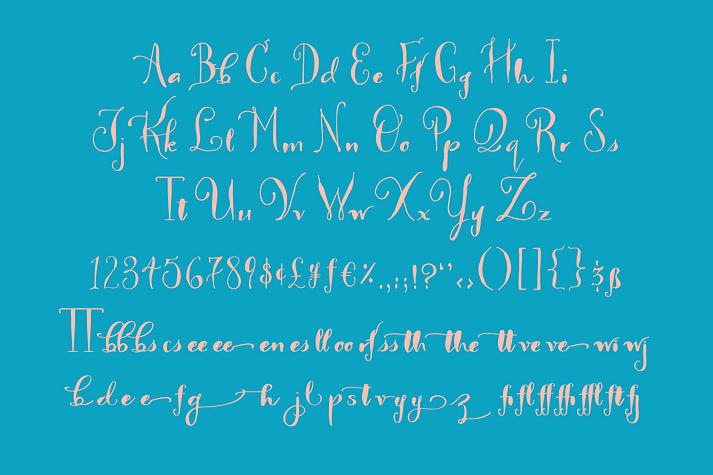 Aa Bb Cc Dd Ee Ff Gg Hh Ii
Jj Kk Ll Mm Nn Oo Pp Qq Rr Ss
Tt Uu Vv Ww Xx Yy Zz
1234567890$¢£¥ƒ€%.,:;!?‘’‹›()[]{}ß
TT bb bs cs ee ee en es ll oo rf ss th the tt ve ve wi wj
b d e e f g h j l p s t v y y z fi fl ff ffi ffl ft fj